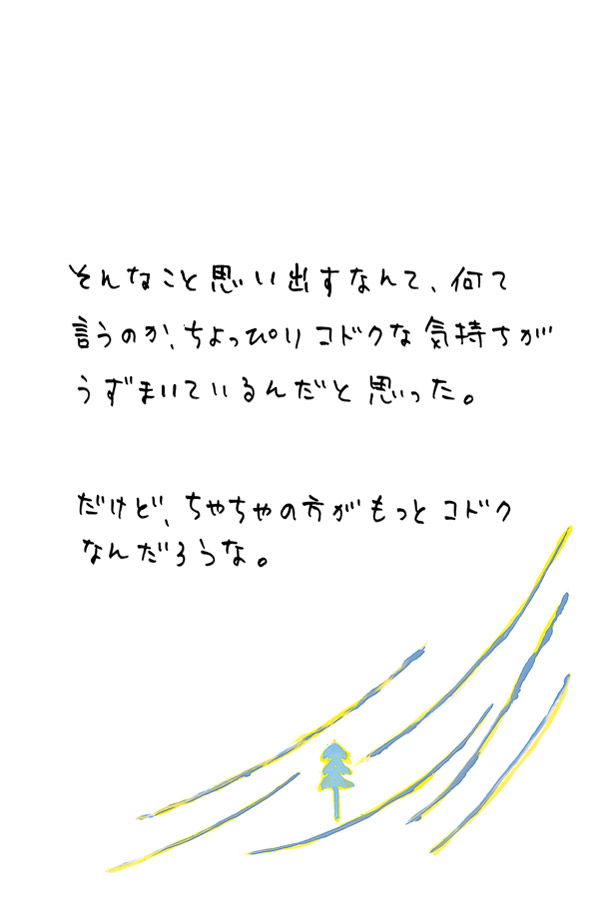 そんなこと思い出すなんて、何て
言うのか、ちょっぴりコドクな気持ちが
うずまいているんだと思った。
だけど、ちゃちゃの方がもっとコドク
なんだろうな。